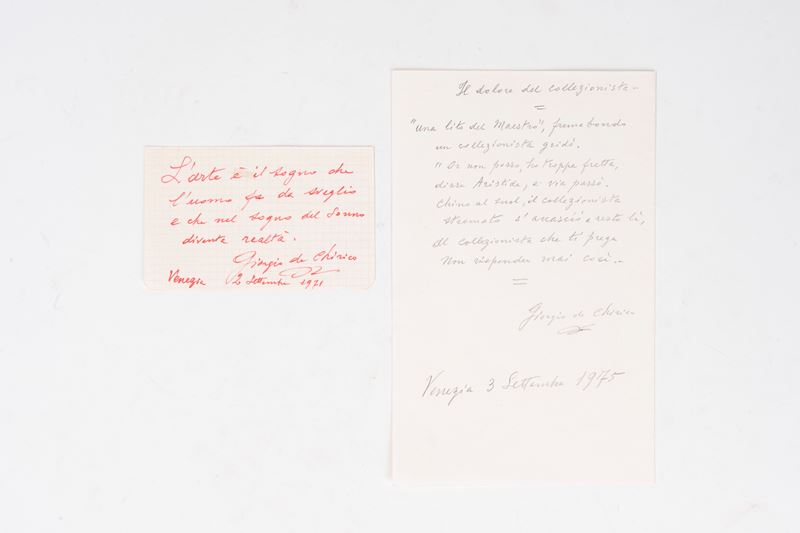 L'arte è il sogno che
l'uomo fa da sveglio
e che nel sogno del sonno
diventa realtà.
Giorgio de Chirico
Venezia 2 Settembre 1971
Il dolore del collezionista -
"una lito del Maestro", fremebondo
un collezionista gridò.
"Or non posso, ho troppa fretta,
disse Aristide, e via passò.
Chino al suol, il collezionista
stremato s'accasciò e restò lì,
Al collezionista che ti prega
Non risponder mai così..
Giorgio de Chirico
Venezia 3 Settembre 1975